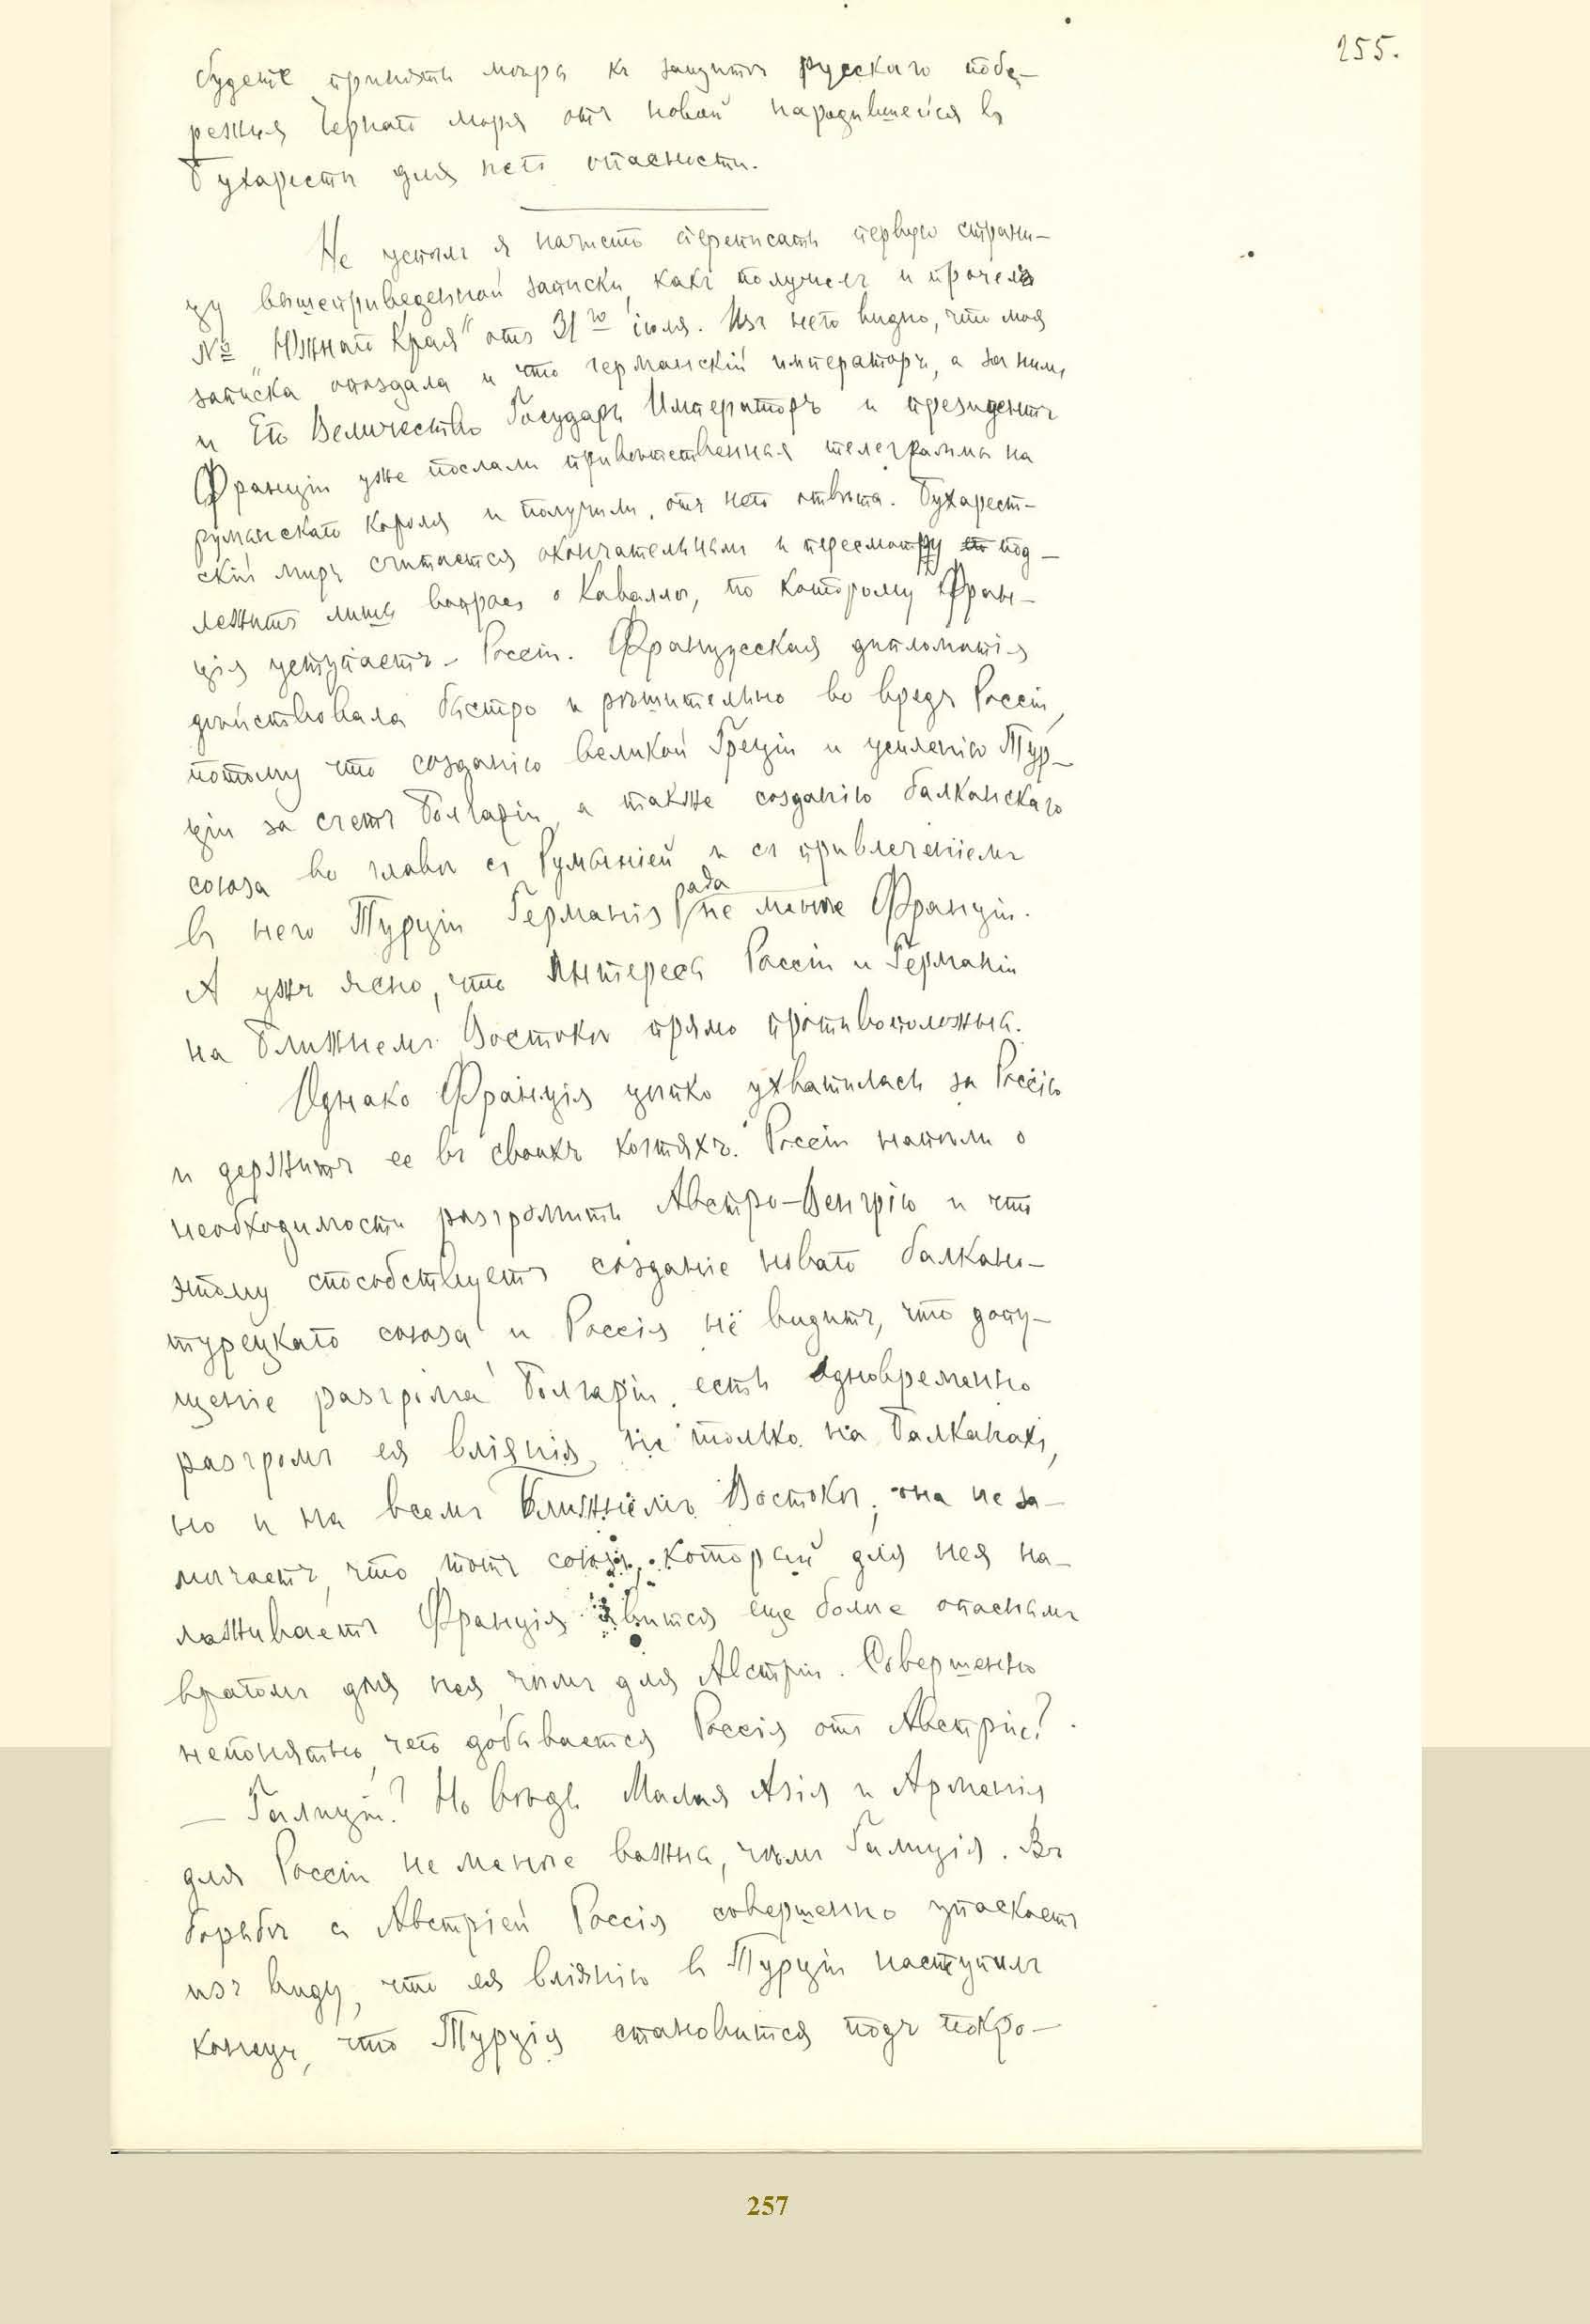 255.
будетъ принять мѣры къ защитѣ русскаго побе-
режья Чернаго моря отъ новой народившейся въ
Бухарестѣ для него опасности.
Не успѣлъ я начисто переписать первую страни-
цу вышеприведенной записки, какъ получилъ и прочелъ
№ „Южнаго Края" отъ 31го іюля. Изъ него видно, что моя
записка опоздала и что германскій императоръ, а за нимъ
и Его Величество Государь Императоръ и президентъ
Франціи уже послали привѣтственныя телеграммы на
румынскаго короля и получили отъ него отвѣты. Бухарест-
скій миръ считается окончательнымъ и пересмотру под-
лежитъ лишь вопросъ о Каваллы, по которому Фран-
ція уступаетъ Россіи. Французская дипломатія
дѣйствовала быстро и рѣшительно во вредъ Россіи,
потому что созданію великой Греціи и усиленію Тур-
ціи за счетъ Болгаріи, а также созданію балканскаго
союза во главѣ съ Румыніей и съ привлеченіемъ
въ него Турціи Германія рада не менѣе Франціи.
А ужъ ясно, что интересы Россіи и Германіи
на Ближнемъ Востокѣ прямо противоположны.
Однако Франція цѣпко ухватилась за Россію
и держитъ ее въ своихъ когтяхъ. Россіи напѣли о
необходимости разгромить Австро-Венгрію и что
этому способствуетъ созданіе новаго балкано-
турецкаго союза и Россія не видитъ, что допу-
щеніе разгрома Болгаріи есть одновременно
разгромъ ея вліянія не только на Балканахъ,
но и на всемъ Ближнемъ Востокѣ; она не за-
мѣчаетъ, что тотъ союзъ, который для нея на-
лаживаетъ Франція явится еще болѣе опаснымъ
врагомъ для нея, чѣмъ для Австріи. Совершенно
непонятно, чего добивается Россія отъ Австріи?
— Галиціи? Но вѣдь Малая Азія и Арменія
для Россіи не менѣе важна, чѣмъ Галиція. Въ
борьбѣ съ Австріей Россія совершенно упускаетъ
изъ виду, что ея вліянію въ Турціи наступилъ
конецъ, что Турція становится подъ покро-
257